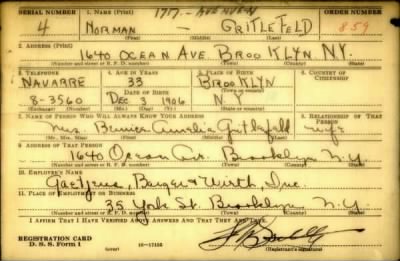 SERIAL NUMBER 1. NAME (Print) ORDER NUMBER
4 NORMAN GRITLEFELD 859
(First) (Middle) (Last)
2. ADDRESS (Print)
1640 OCEAN AVE BROOKLYN N.Y.
(Number and street or R. F. D. number) (Town) (County) (State)
3. TELEPHONE 4. AGE IN YEARS 5. PLACE OF BIRTH 6. COUNTRY OF CITIZENSHIP
NAVARRE 33 BROOKLYN
DATE OF BIRTH (Town or county)
8-3560 DEC 3 1906 N
(Exchange) (Number) (Mo.) (Day) (Yr.) (State or country)
7. NAME OF PERSON WHO WILL ALWAYS KNOW YOUR ADDRESS 8. RELATIONSHIP OF THAT PERSON
Mrs. Amelia wife
(Mr., Mrs., Miss) (First) (Middle) (Last)
9. ADDRESS OF THAT PERSON
1640 Ocean Av. Brooklyn N.Y
(Number and street or R. F. D. number) (Town) (County) (State)
10. EMPLOYER'S NAME
Berger & Wirth, Inc.
11. PLACE OF EMPLOYMENT OR BUSINESS
35 York St. Brooklyn N.Y.
(Number and street or R. F. D. number) (Town) (County) (State)
I AFFIRM THAT I HAVE VERIFIED ABOVE ANSWERS AND THAT THEY ARE TRUE.
REGISTRATION CARD
D. S. S. Form 1 16-17105 (Registrant's signature)